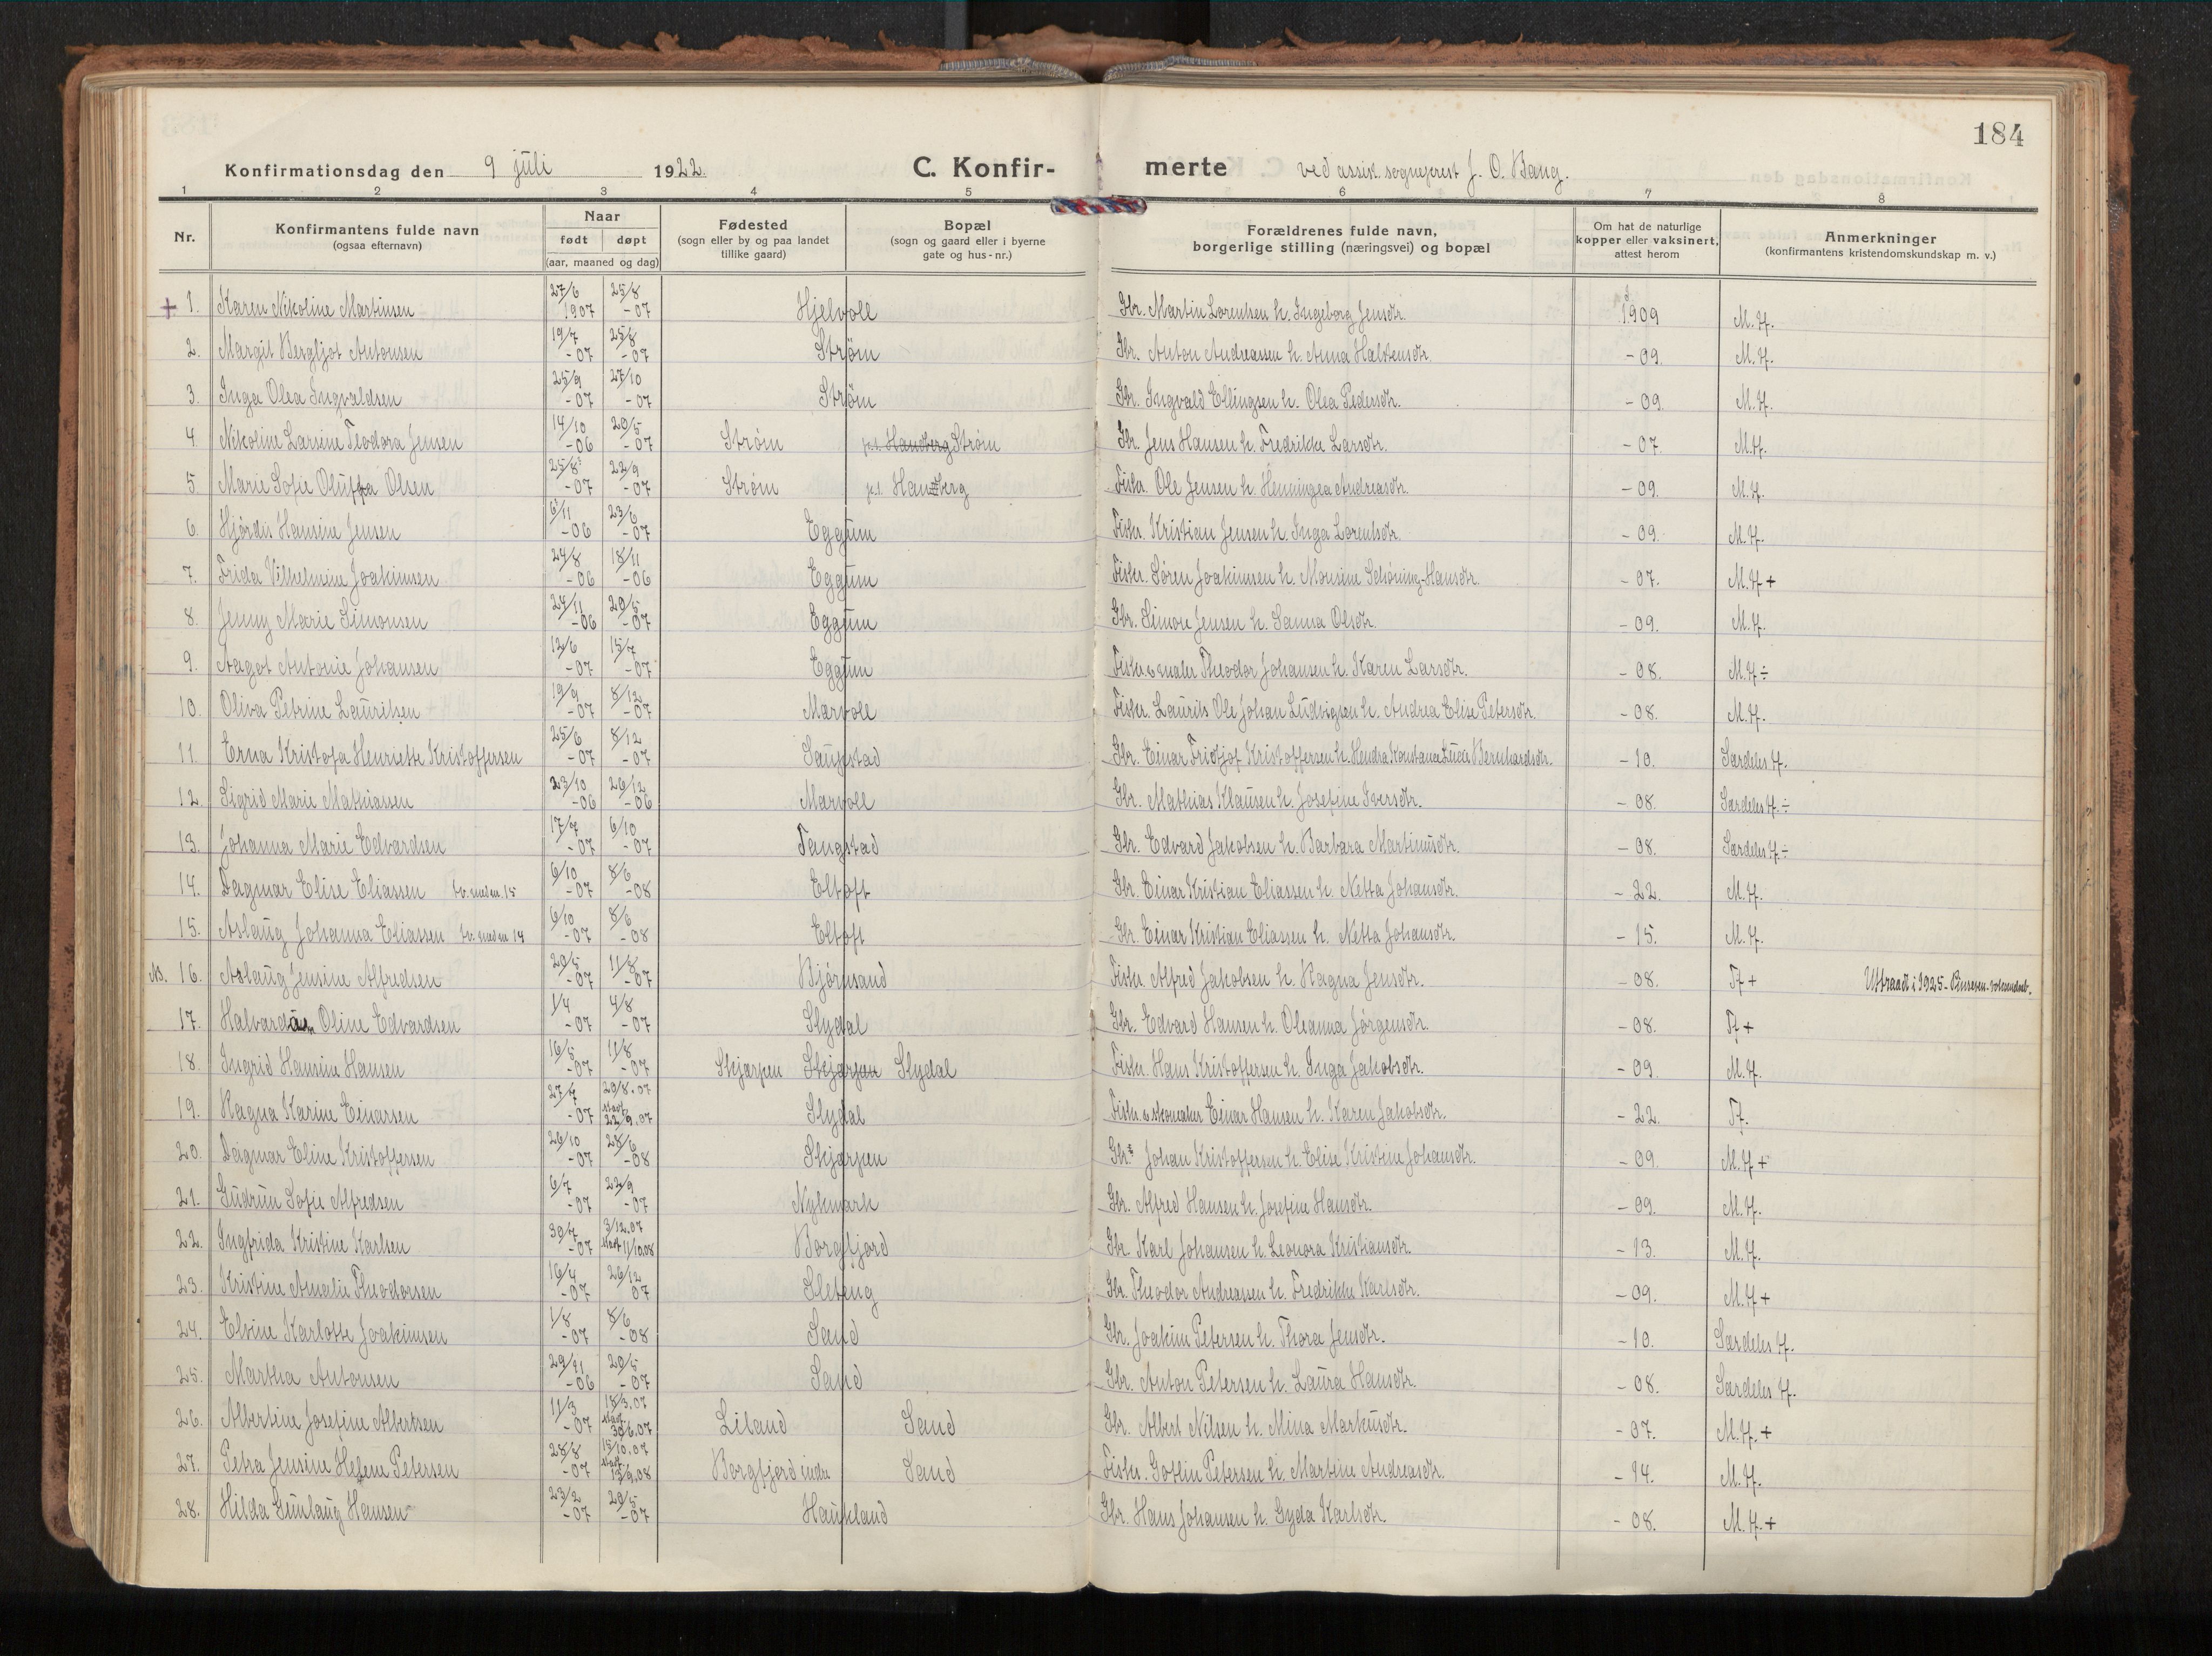 184
Konfirmationsdag den 9 juli 1922. C. Konfir- merte ved assist. sogneprest J. O. Bang.
1 2 3 4 5 6 7 8
Nr. Konfirmantens fulde navn (ogsaa efternavn) Naar født døpt (aar, maaned og dag) Fødested (sogn eller by og paa landet tillike gaard) Bopæl (sogn og gaard eller i byerne gate og hus-nr.) Forældrenes fulde navn, borgerlige stilling (næringsvei) og bopæl Om hat de naturlige kopper eller vaksinert, attest herom Anmerkninger (konfirmantens kristendomskundskap m. v.)
+ 1. Karen Nikoline Martinsen 27/6 1907 25/8 -07 Hjelvoll Gbr. Martin Lorentsen h. Ingeborg Jensdtr. 1909 M. H.
2. Margit Bergljot Antonsen 19/7 -07 25/8 -07 Strøm Gbr. Anton Andreassen h. Anna Halstensdtr. -09. M. H.
3. Inga Olea Ingvaldsen 25/9 -07 27/10 -07 Strøm Gbr. Ingvald Ellingsen h. Olea Pedersdtr. -09. M. H.
4. Nikoline Larsine Teodora Jensen 14/10 -06 20/5 -07 Strøm p.t. Handberg Strøm Gbr. Jens Hansen h. Fredrikke Larsdtr. -07. M. H.
5. Marie Sofie Oluffa Olsen 25/8 -07 22/9 -07 Strøm p.t. Handberg Fisker. Ole Jensen h. Henningea Andreasdtr. -09. M. H.
6. Hjørdis Hansine Jensen 6/11 -06 23/6 -07 Eggum Fisker. Kristian Jensen h. Inga Lorentsdtr. -09. M. H.
7. Frida Vilhelmine Joakimsen 24/8 -06 18/11 -06 Eggum Fisker. Søren Joakimsen h. Monsine Schöning-Hansdtr. -07. M. H +
8. Jenny Marie Simonsen 24/11 -06 20/5 -07 Eggum Gbr. Simon Jensen h. Sanna Olsdtr. -09. M. H.
9. Aagot Antonie Johansen 12/6 -07 15/7 -07 Eggum Fisker. o. maler Theodor Johansen h. Karen Larsdtr. -08. M. H ÷
10. Oliva Petrine Lauritsen 19/9 -07 8/12 -07 Marvoll Fisker. Laurits Ole Johan Ludvigsen h. Andrea Elise Petersdtr. -08. M. H.
11. Erna Kristofa Henriette Kristoffersen 25/6 -07 8/12 -07 Saupstad Gbr. Einar Fridtjof Kristoffersen h. Hendra Konstanse Lucie Bernhardsdtr. -10. Særdeles H.
12. Sigrid Marie Mathiassen 23/10 -06 26/12 -06 Marvoll Gbr. Mathias Klausen h. Josefine Iversdtr. -08. Særdeles H. ÷
13. Johanna Marie Edvardsen 17/7 -07 6/10 -07 Tangstad Gbr. Edvard Jakobsen h. Barbara Martinusdtr. -08. Særdeles H ÷
14. Dagmar Elise Eliassen tv. med nr. 15 6/10 -07 8/6 -08 Eltoft Gbr. Einar Kristian Eliassen h. Netta Johansdtr. -22. M. H.
15. Aslaug Johanna Eliassen tv. med nr 14 6/10 -07 8/6 -08 Eltoft Gbr. Einar Kristian Eliassen h. Netta Johansdtr. -15. M. H.
N. 16. Aslaug Jensine Alfredsen 20/5 -07 11/8 -07 Bjørnsand Fisker. Alfred Jakobsen h. Ragna Jensdtr. -08. T. + Uttraadt i 1925-
17. Halvardine Oline Edvardsen 1/4 -07 4/8 -07 Slydal Gbr. Edvard Hansen h. Oleanna Jørgensdtr. -08. T. +
18. Ingrid Hansine Hansen 16/5 -07 11/8 -07 Skjærpen Skjærpen Slydal Fisker. Hans Kristoffersen h. Inga Jakobsdtr. -09. M. H.
19. Ragna Karine Einarsen 27/7 -07 20/8.07 stadf. 22/9.07 Slydal Fisker. o. skomaker Einar Hansen h. Karen Jakobsdtr. -22. T.
20. Dagmar Eline Kristoffersen 26/10 -07 28/6 -08 Skjærpen Gbr. Johan Kristoffersen h. Elise Kristine Johansdtr. -09. M. H +
21. Gudrun Sofie Alfredsen 6/7 -07 22/9 -07 Nykmark Gbr. Alfred Hansen h. Josefine Hansdtr. -09. M. H.
22. Ingfrida Kristine Karlsen 30/7 -07 3/12.07 stadf 11/10.08 Borgfjord Gbr. Karl Johansen h. Leonora Kristiansdtr. -13. M. H.
23. Kristine Amalie Theodorsen 16/4 -07 26/12 07 Sleteng Gbr. Theodor Andreassen h. Fredrikke Karlsdtr. -09. M. H +
24. Elvine Karlotte Joakimsen 1/8 -07 8/6 -08 Sand Gbr. Joakim Petersen h. Thora Jensdtr. -10. Særdeles H.
25. Martha Antonsen 29/11 -06 20/5 -07 Sand Gbr. Anton Petersen h. Laura Hansdtr. -08. Særdeles H.
26. Albertine Josefine Albertsen 11/3 -07 18/3.07 stadf. 30/6.07 Liland Sand Gbr. Albert Nilsen h. Mina Markusdtr. -07. M. H. +
27. Petra Jensine Helene Petersen 28/8 -07 15/10.07 stadf. 13/9.08 Borgfjord indre Sand Fisker. Gotlin Petersen h. Martine Andreasdtr. -14. M. H.
28. Hilda Gunlaug Hansen 23/2 -07 20/5 -07 Haukland Gbr. Hans Johansen h. Gyda Karlsdtr. -08. M. H. +